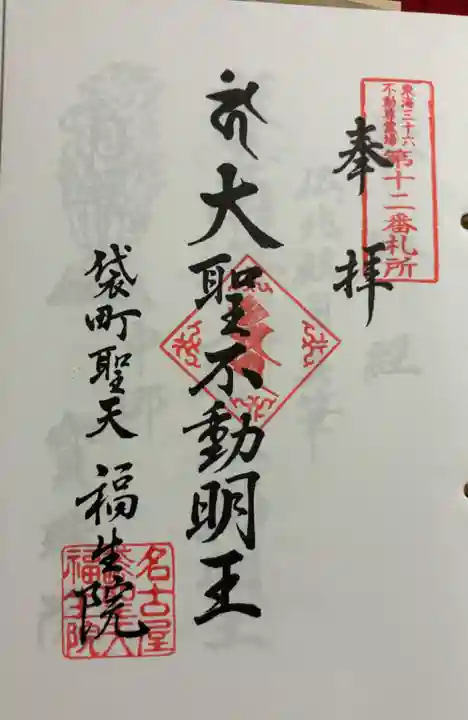 東海三十六
不動尊霊場
第十二番札所
奉拝
大聖不動明王
袋町聖天 福生院
名古屋
袋町聖天
福生院